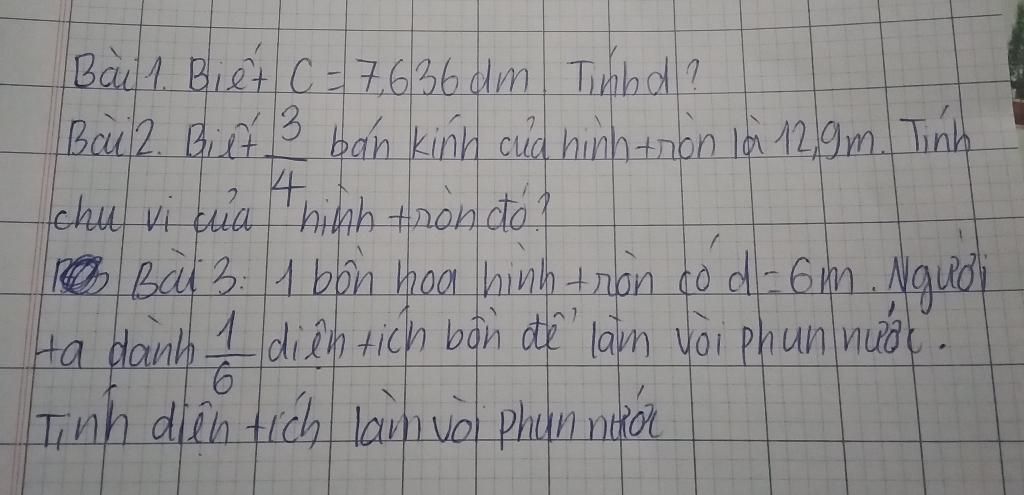 Bài 1. Biết C = 7,636 dm. Tính d?
Bài 2. Biết 3/4 bán kính của hình tròn là 12,9m. Tính
chu vi của hình tròn đó?
Bài 3: 1 bồn hoa hình tròn có d = 6m. Người
ta dành 1/6 diện tích bồn để làm vòi phun nước.
Tính diện tích làm vòi phun nước